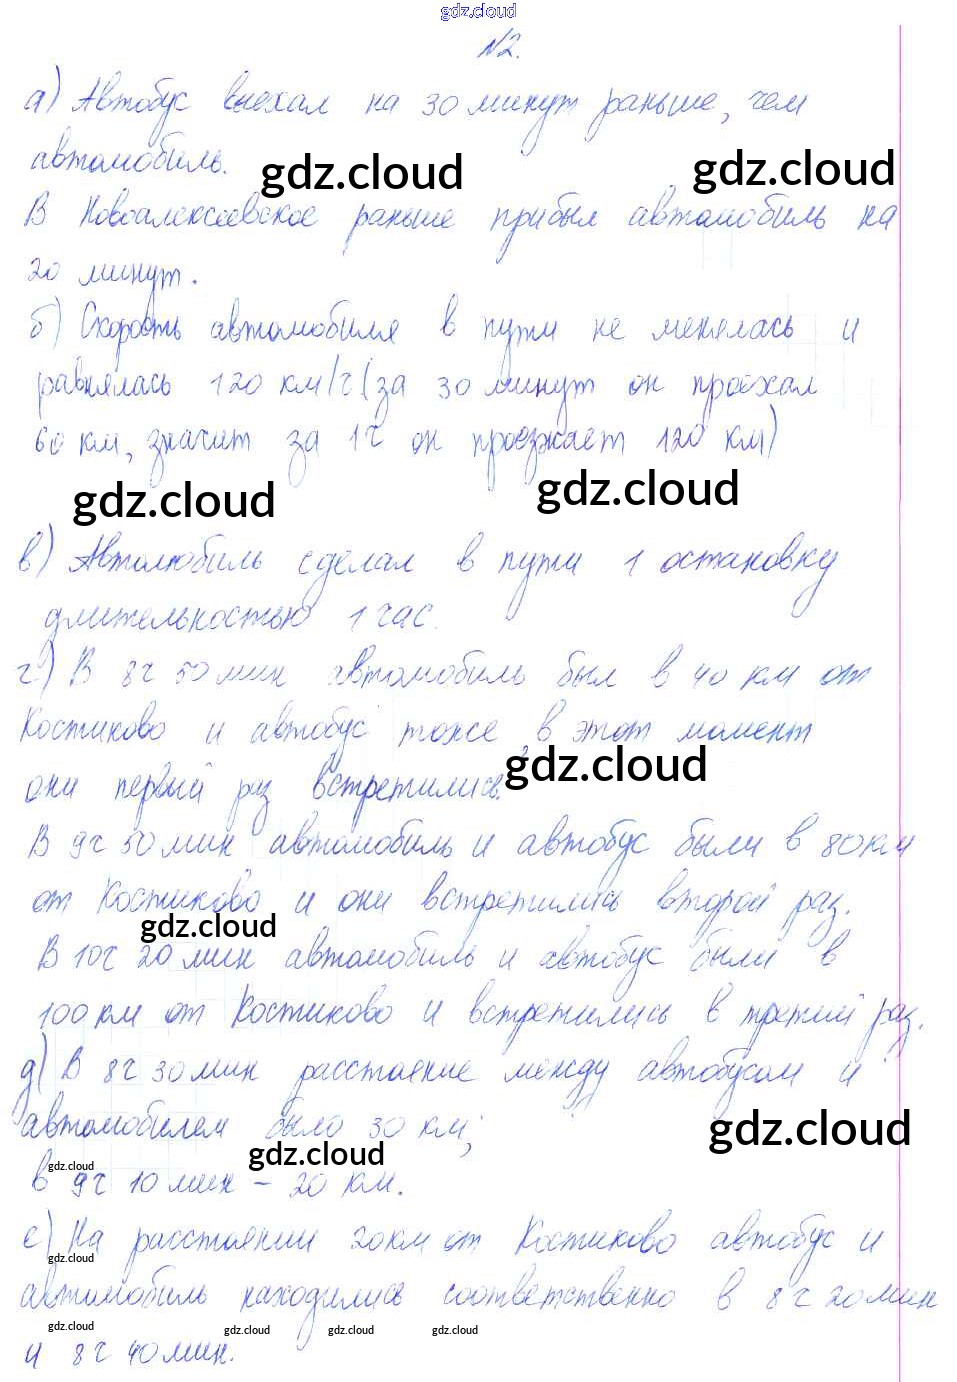 gdz.cloud
№2.
а) Автобус выехал на 30 минут раньше, чем
автомобиль.
gdz.cloud
gdz.cloud
В Новоалексеевское раньше прибыл автомобиль на
20 минут.
б) Скорость автомобиля в пути не менялась и
равнялась 120 км/ч (за 30 минут он проехал
60 км, значит за 1 ч он проезжает 120 км)
gdz.cloud
gdz.cloud
в) Автомобиль сделал в пути 1 остановку
длительностью 1 час.
г) В 8 ч 50 мин автомобиль был в 40 км от
Костиково и автобус тоже, в этот момент
они первый раз встретились.
gdz.cloud
В 9 ч 50 мин автомобиль и автобус были в 80 км
от Костиково и они встретились второй раз.
gdz.cloud
В 10 ч 20 мин автомобиль и автобус были в
100 км от Костиково и встретились в третий раз.
д) В 8 ч 30 мин расстояние между автобусом и
автомобилем было 30 км;
gdz.cloud
gdz.cloud
gdz.cloud
в 9 ч 10 мин – 20 км.
е) На расстоянии 20 км от Костиково автобус и
gdz.cloud
автомобиль находились соответственно в 8 ч 20 мин
gdz.cloud
gdz.cloud
gdz.cloud
gdz.cloud
и 8 ч 40 мин.